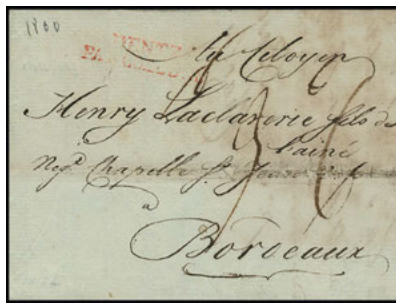 1800
Au Citoyen
Henry Laclaverie fils de
l'ainé
Neg.t Chapelle St.
a
Bordeaux